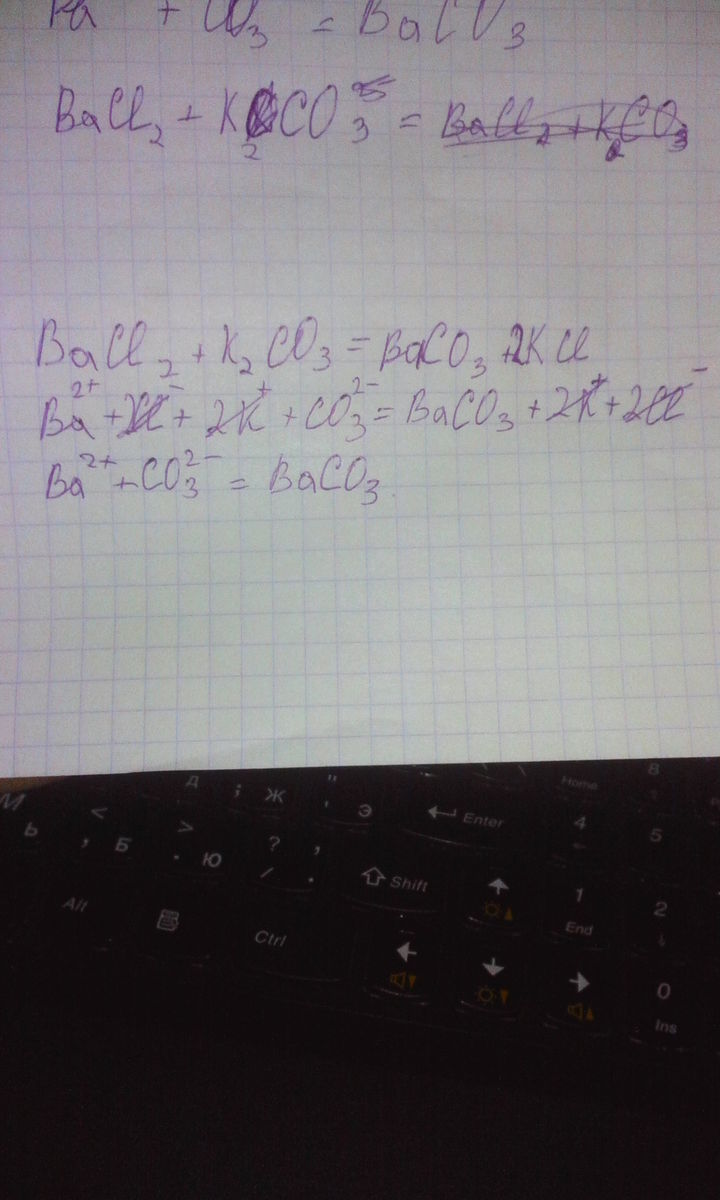 + CO3 = BaCO3
BaCl2 + K2CO3 =
BaCl2 + K2CO3 = BaCO3 + 2KCl
Ba2+ + 2Cl- + 2K+ + CO32- = BaCO3 + 2K+ + 2Cl-
Ba2+ + CO32- = BaCO3
Д ; Ж " ' Э Enter Home 8
М Ь < , Б > . Ю ? / , . Shift 4 5
Alt Ctrl 1 End 2
0 Ins